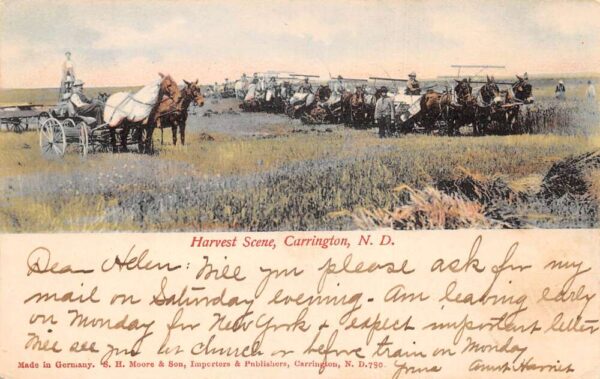 Harvest Scene, Carrington, N. D.
Dear Helen: Will you please ask for my
mail on Saturday evening. Am leaving early
on Monday for New York & expect important letter
Will see you at church or before train on Monday
Made in Germany. S. H. Moore & Son, Importers & Publishers, Carrington, N. D. 780.
Yours Aunt Harriet